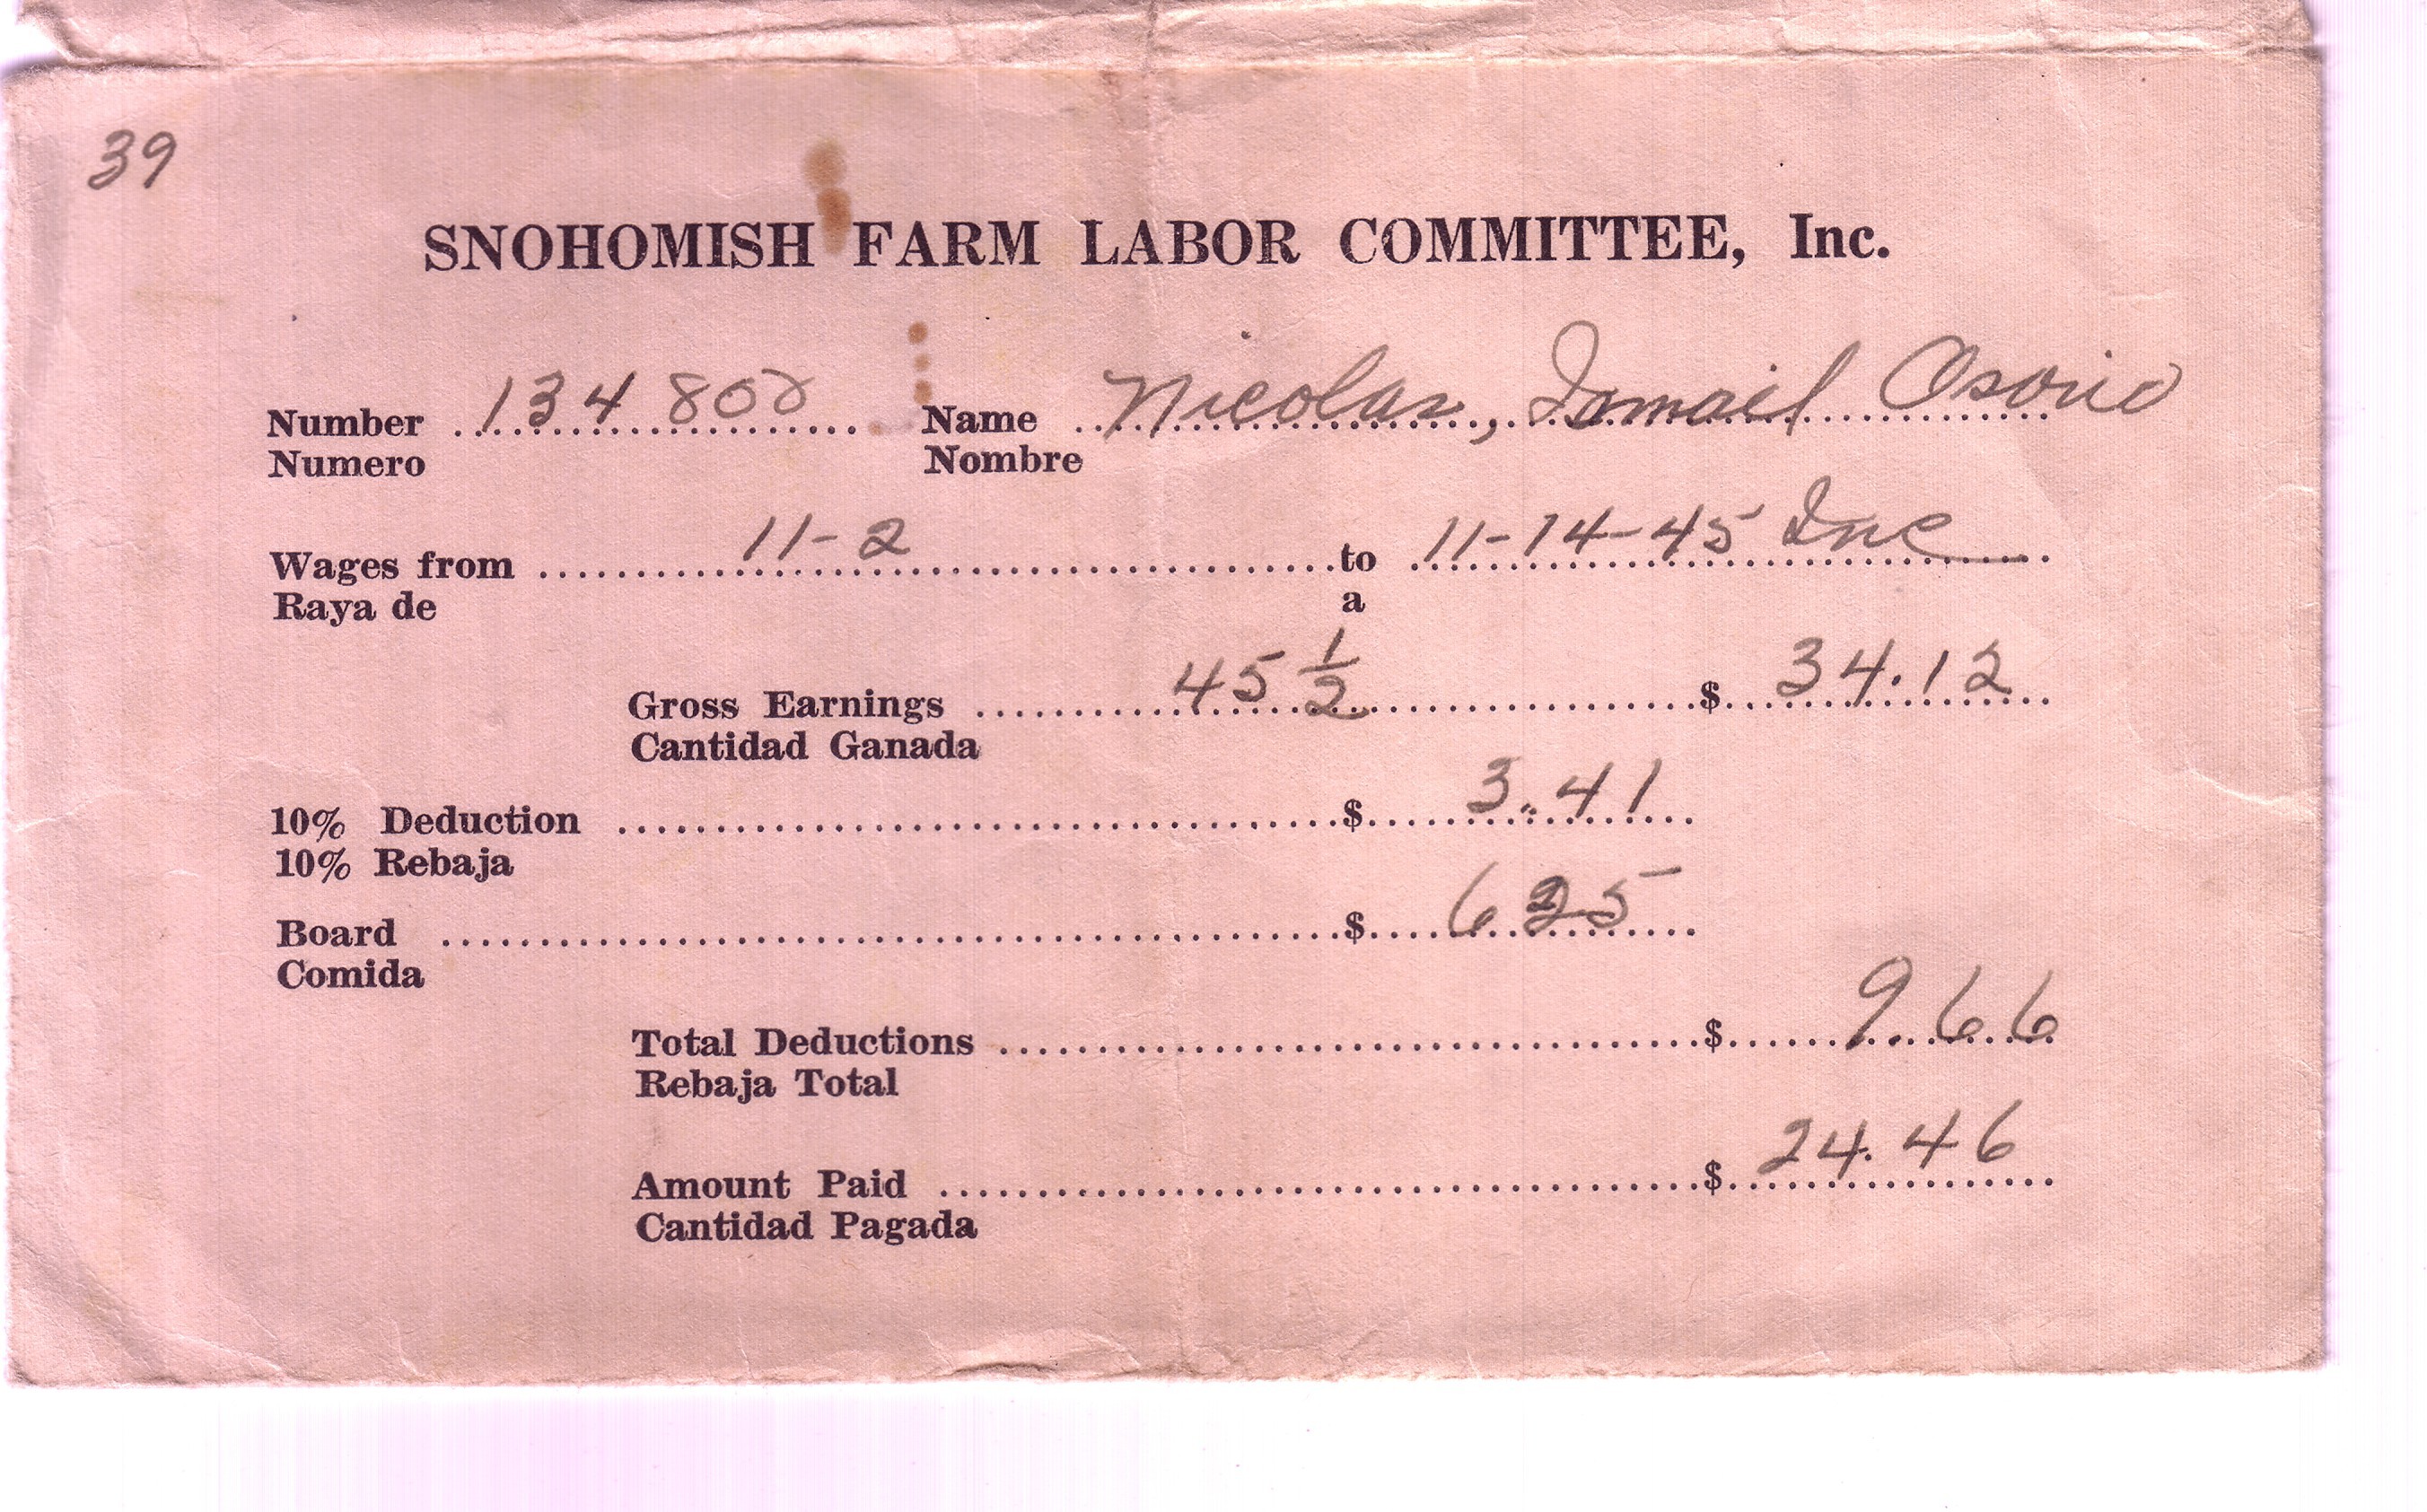 39
SNOHOMISH FARM LABOR COMMITTEE, Inc.
Number 134 800 Name Nicolas, Ismail Osorio
Numero Nombre
Wages from 11-2 to 11-14-45 Inc
Raya de a
Gross Earnings 45 1/2 $ 34.12
Cantidad Ganada
10% Deduction $ 3.41
10% Rebaja
Board $ 6 25
Comida
Total Deductions $ 9.66
Rebaja Total
Amount Paid $ 24.46
Cantidad Pagada